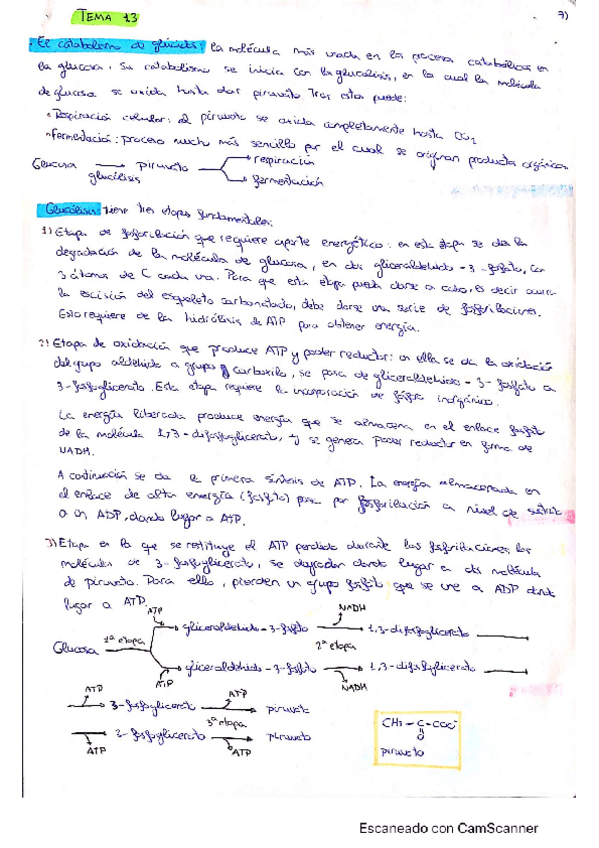 TEMA 13
7)
El catabolismo de glúcidos: la molécula más usada en los procesos catabólicos es
la glucosa. Su catabolismo se inicia con la glucólisis, en la cual la molécula
de glucosa se oxida hasta dar piruvato. Tras esta puede:
• Respiración celular: el piruvato se oxida completamente hasta CO2
• Fermentación: proceso mucho más sencillo por el cual se originan productos orgánicos
Glucosa → piruvato → respiración
glucólisis → fermentación
Glucólisis: tiene tres etapas fundamentales:
1) Etapa de fosforilación que requiere aporte energético: en esta etapa se da la
degradación de la molécula de glucosa, en dos gliceraldehído-3-fosfato, con
3 átomos de C cada una. Para que esta etapa pueda darse a cabo, es decir ocurra
la escisión del esqueleto carbonatado, debe darse una serie de fosforilaciones.
Esto requiere de la hidrólisis de ATP para obtener energía.
2) Etapa de oxidación que produce ATP y poder reductor: en ella se da la oxidación
del grupo aldehído a grupo carboxilo, se pasa de gliceraldehído-3-fosfato a
3-fosfoglicerato. Esta etapa requiere la incorporación de fósforo inorgánico.
La energía liberada produce energía que se almacena en el enlace fosfato
de la molécula 1,3-difosfoglicerato, y se genera poder reductor en forma de
NADH.
A continuación se da la primera síntesis de ATP. La energía almacenada en
el enlace de alta energía (fosfato) pasa por fosforilación a nivel de sustrato
a un ADP, dando lugar a ATP.
3) Etapa en la que se restituye el ATP perdido durante las fosforilaciones, las
moléculas de 3-fosfoglicerato, se degradan dando lugar a dos moléculas
de piruvato. Para ello, pierden un grupo fosfato que se une a ADP dando
lugar a ATP.
ATP NADH
Glucosa 1ª etapa → gliceraldehído-3-fosfato 2ª etapa → 1,3-difosfoglicerato
→ gliceraldehído-3-fosfato → 1,3-difosfoglicerato
ATP NADH
ATP ATP
→ 3-fosfoglicerato → piruvato
3ª etapa
→ 3-fosfoglicerato → piruvato
ATP ATP
CH3 - C - COO-
O
piruvato
Escaneado con CamScanner